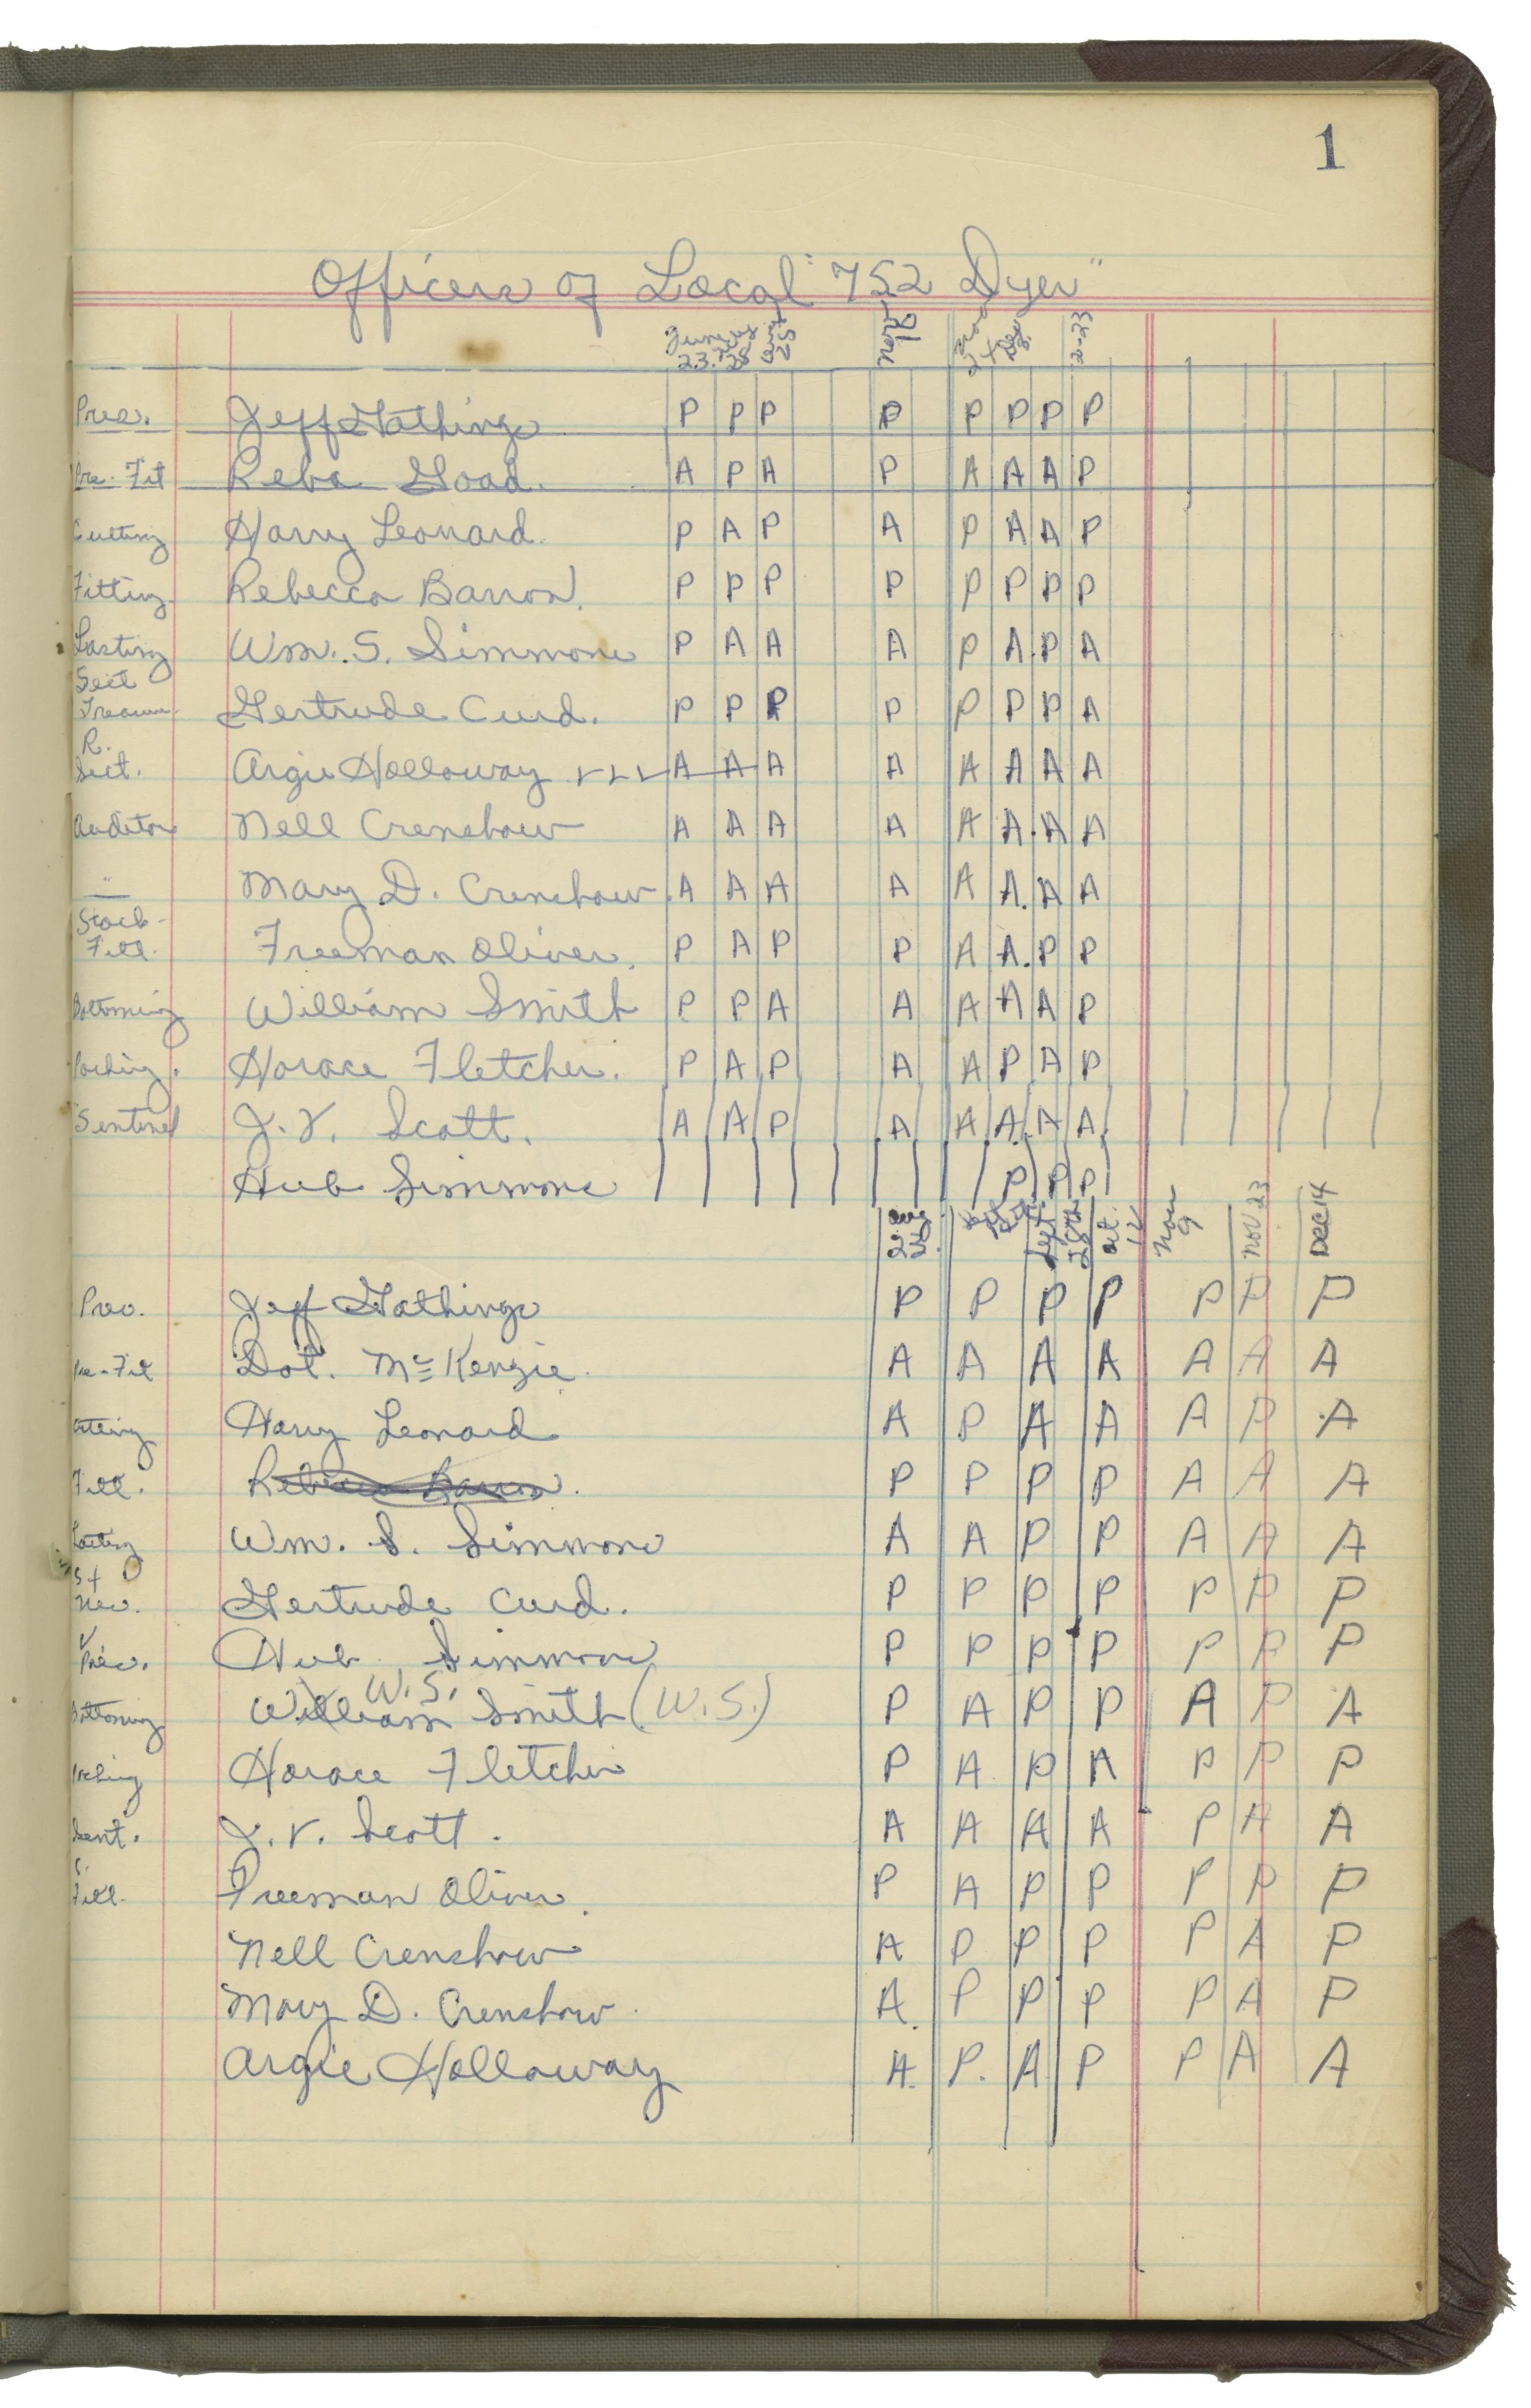 1
Officers of Local "752 Dyer"
June 23. July 28 25 Nov 18 Dec 3. 2-23
Pres. Jeff Gathings P P P P P P P P
Pre. Fit Reba Goad. A P A P A A A P
Cutting Harry Leonard. P A P A P A A P
Fitting Rebecca Barron. P P P P P P P P
Lasting Wm. S. Simmons P A A A P A. P A
Sect
Treasur. Gertrude Curd. P P P P P P P A
R.
Sect. Argie Holloway A A A A A A A A
Auditor Nell Crenshaw A A A A A A. A A
" Mary D. Crenshaw. A A A A A A. A A
Stock-
Fitt. Freeman Oliver. P A P P A A. P P
Bottoming William Smith P P A A A A A P
Packing. Horace Fletcher. P A P A A P A P
Sentinel J. V. Scott. A A P A A A. A A.
Hub Simmons P P P
Aug 24 Sept. 28th Oct. 12 Nov 9 Nov 23 DEC 14
Pres. Jeff Gathings P P P P P P P
Pre-Fit Dot. McKenzie. A A A A A A A
Cutting Harry Leonard A P A A A P A
Fitt. Rebecca Barron. P P P P A A A
Lasting Wm. S. Simmons A A P P A A A
S + Gertrude Curd. P P P P P P P
V
Pres. Hub Simmons P P P P P P P
W. S.
Bottoming William Smith (W. S.) P A P P A P A
Packing Horace Fletcher P A P A P P P
Sent. J. V. Scott. A A A A P A A
S.
Fitt. Freeman Oliver. P A P P P P P
Nell Crenshaw A P P P P A P
Mary D. Crenshaw. A. P P P P A P
Argie Holloway A. P. A P P A A